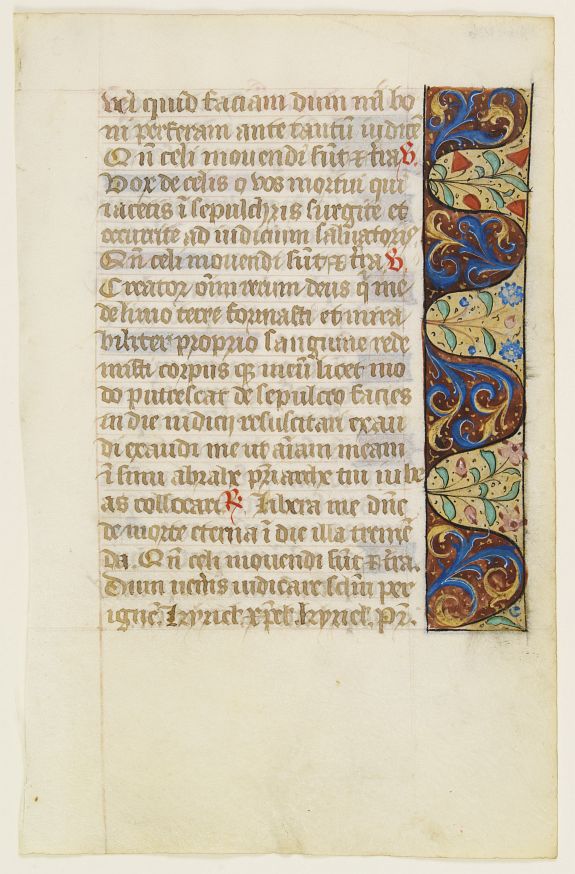 vel quid faciam dum nil bo
ni perferam ante tantū iudicē
Qn̄ celi mouendi sūt ⁊ tr̄a V.
Vox de celis o vos mortui qui
iacetis ī sepulchris surgite et
occurrite ad iudicium saluatoris
Qn̄ celi mouendi sūt ⁊ tr̄a V.
Creator oīm rerum deus q̄ me
de limo terre formasti et mira
biliter proprio sanguine rede
misti corpus q̨ meū licet mo
do putrescat de sepulcro facies
in die iudicij resuscitari exau
di exaudi me ut aīam meam
ī sinu abrahe pr̄iarche tui iube
as collocare R. Libera me dn̄e
de morte eterna ī die illa tremē
da. Qn̄ celi mouendi sūt ⁊ tr̄a.
Dum uen̄is iudicare sclm̄ per
ignē. kyriel. xp̄el. kyriel. Pr̄.